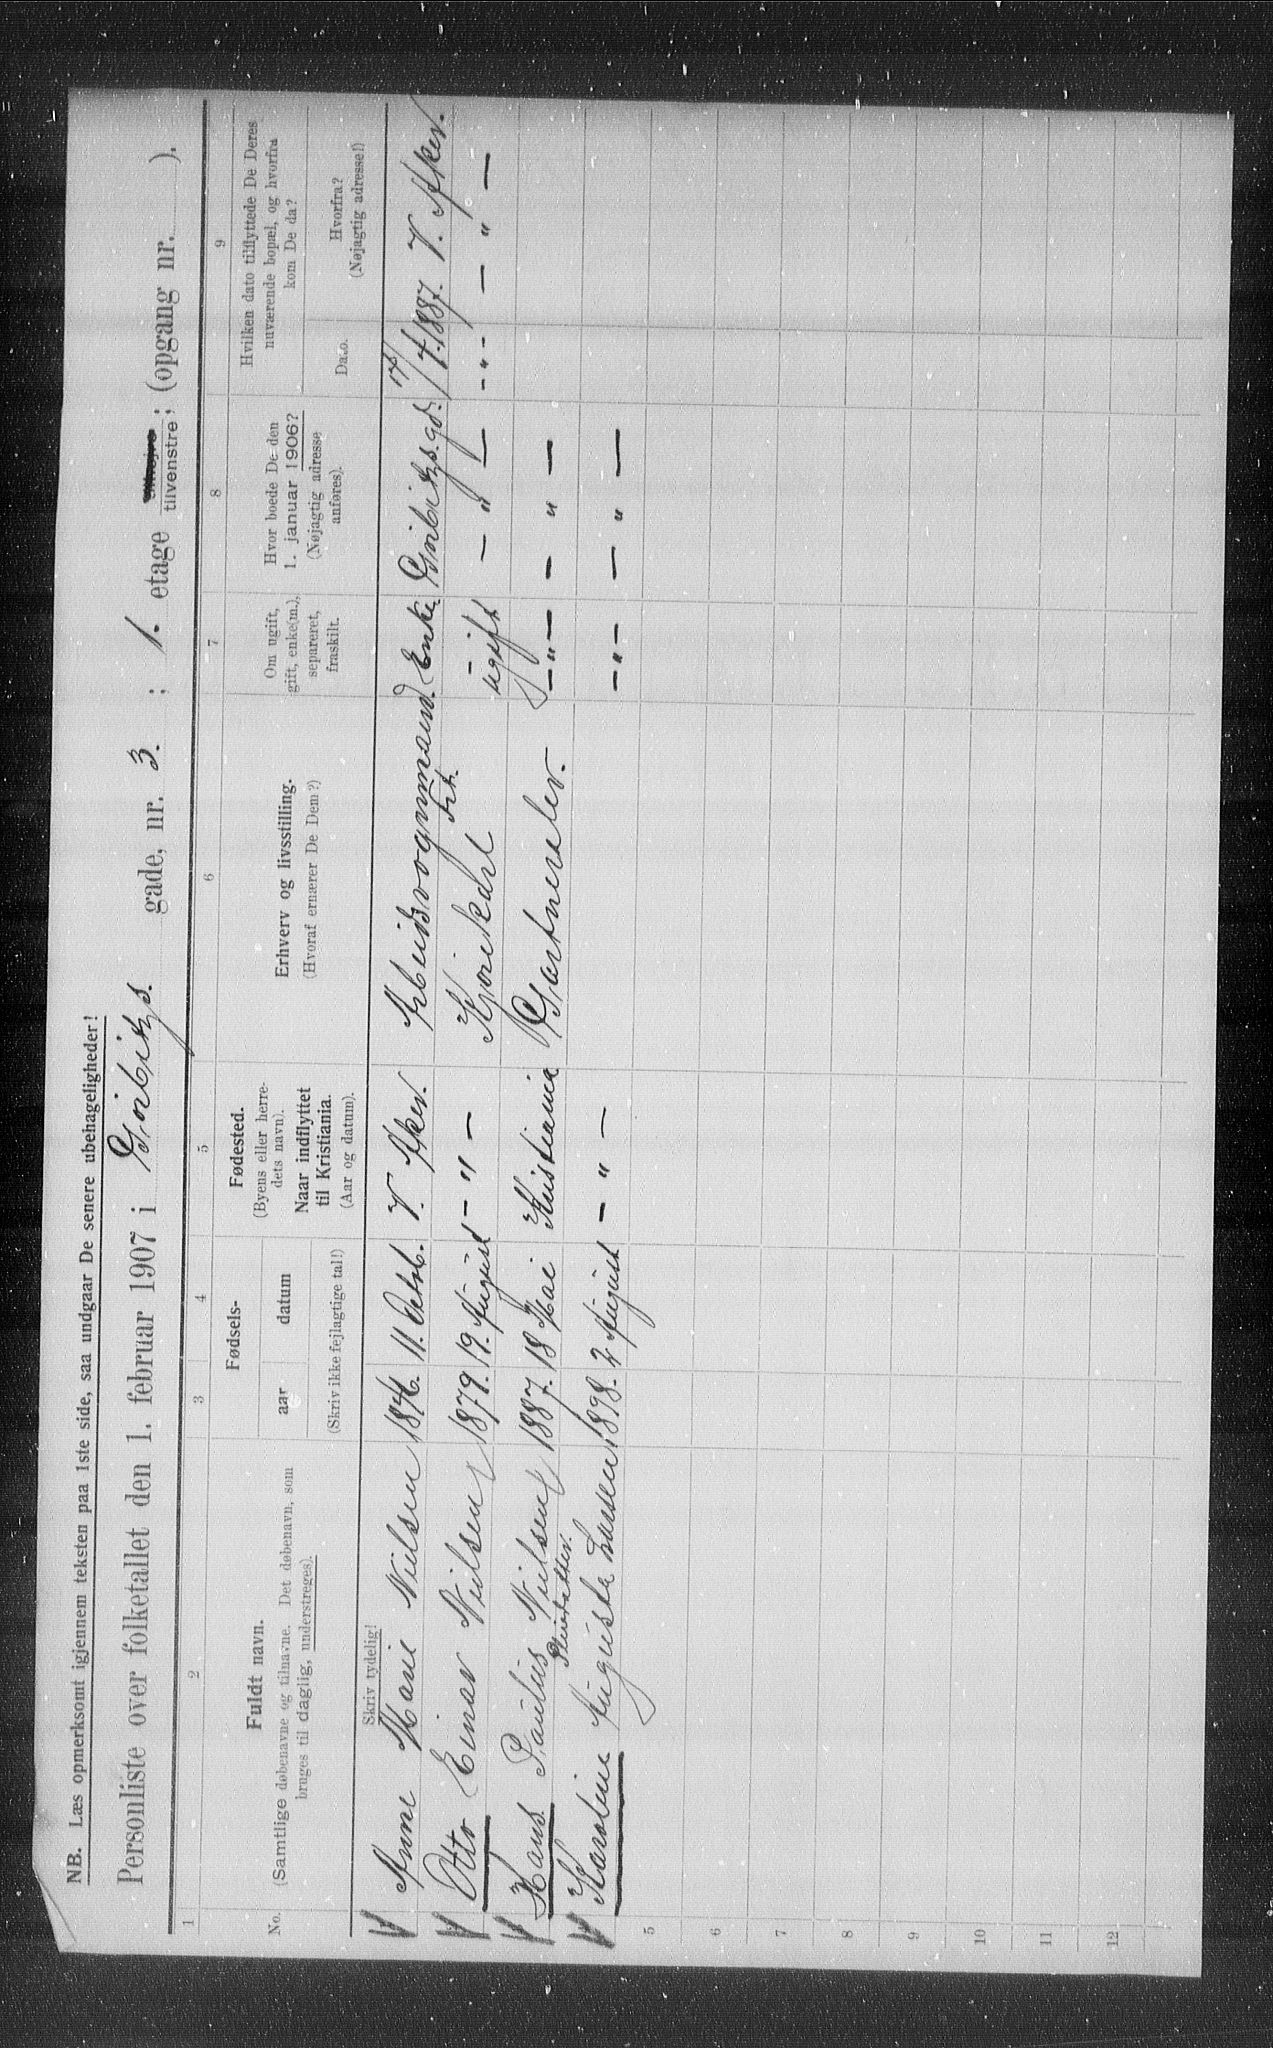 NB. Læs opmerksomt igjennem teksten paa 1ste side, saa undgaar De senere ubehageligheder!
Personliste over folketallet den 1. februar 1907 i Gørbitzs. gade, nr. 3. ; 1. etage tilvenstre; (opgang nr. ).
1 2 3 4 5 6 7 8 9
No. Fuldt navn. (Samtlige døbenavne og tilnavne. Det døbenavn, som bruges til daglig, understreges).
Fødsels-
aar datum
(Skriv ikke fejlagtige tal!)
Fødested.
(Byens eller herre-
dets navn).
Naar indflyttet
til Kristiania.
(Aar og datum).
Erhverv og livsstilling.
(Hvoraf ernærer De Dem?)
Om ugift,
gift, enke(m.),
separeret,
fraskilt.
Hvor boede De den
1. januar 1906?
(Nøjagtig adresse
anføres).
Hvilken dato tilflyttede De Deres
nuværende bopæl, og hvorfra
kom De da?
Dato. Hvorfra?
(Nøjagtig adresse!)
Skriv tydelig!
Anne Marie Nielsen 1846. 11. Octob. V. Aker. Arbeidsvognmand Enke Gørbitzs.gd. 17/4.1887. V. Aker.
Otto Einar Nielsen 1879. 19. August — " — Kjørekarl ugift — " — - " - — " —
Hans Paulus Nielsen 1887. 18 Mai Kristiania Gartnerelev. — " — — " —
Pleiedatter.
Karoline Augusta Larsen 1898. 2 August — " — — " — — " —
5
6
7
8
9
10
11
12